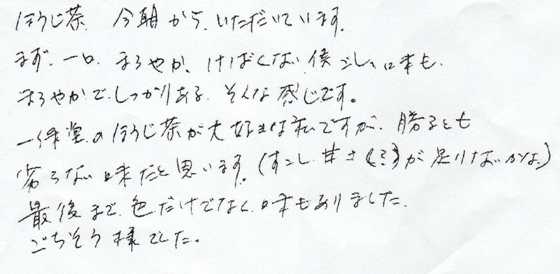 ほうじ茶 今朝から、いただいています。
まず、一口、まろやか、けばくない 後ごし、口末も
まろやかで、しっかりある、そんな感じです。
一保堂のほうじ茶が大好きな私ですが、勝るとも
劣らない味だと思います。(すこし 甘さ(?)が足りないかな)
最後まで、色だけでなく、味もありました。
ごちそう様でした。